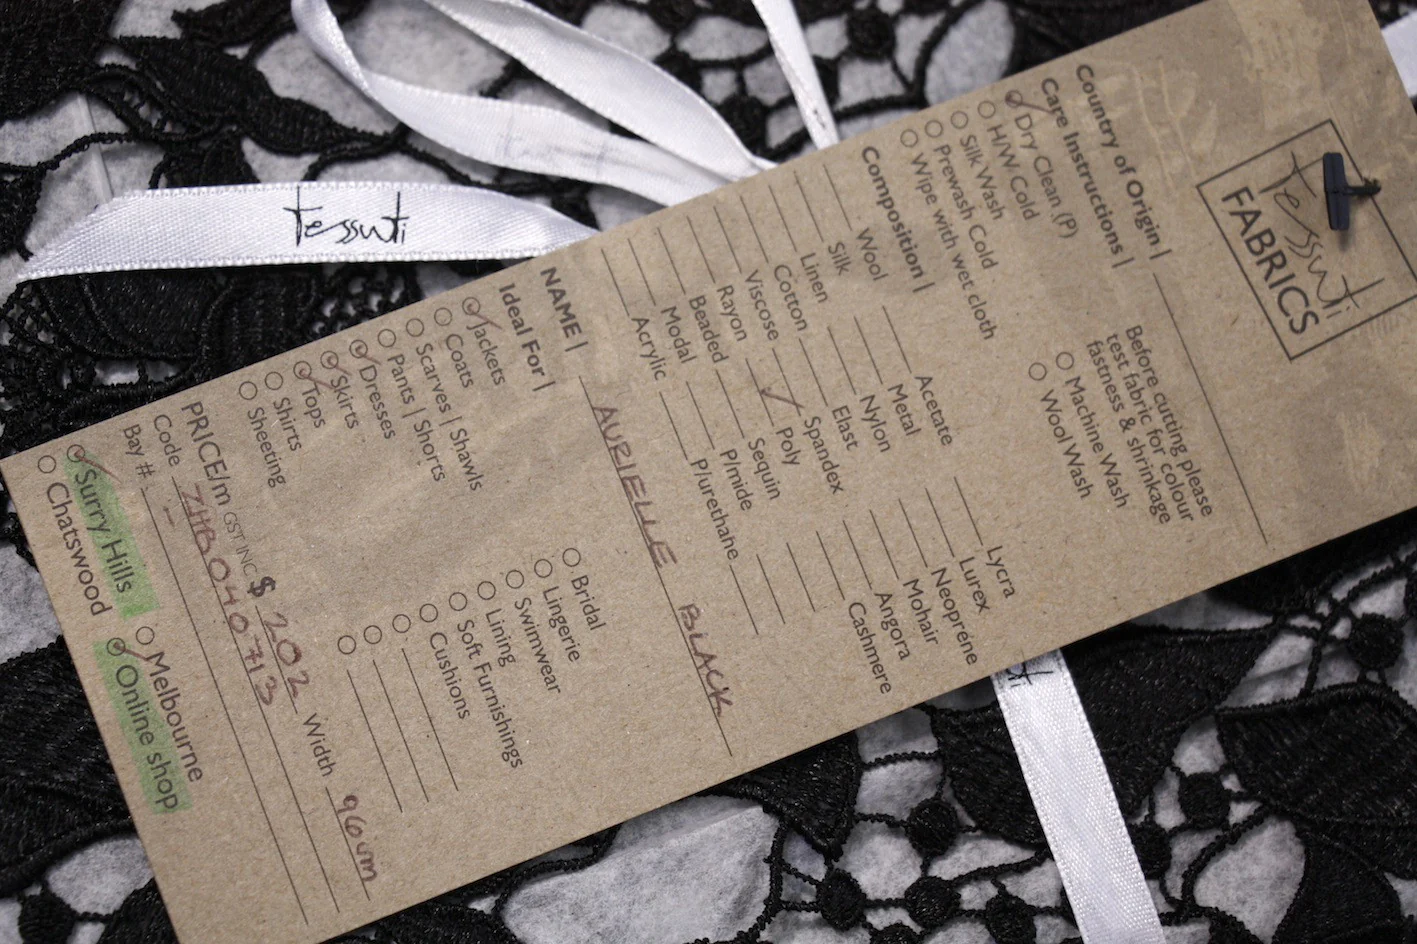 tessuti
FABRICS
Country of Origin |
Care Instructions |
Dry Clean (P)
H/W Cold
Silk Wash
Prewash Cold
Wipe with wet cloth
Before cutting please
test fabric for colour
fastness & shrinkage
Machine Wash
Wool Wash
Composition |
Wool Acetate Lycra
Silk Metal Lurex
Linen Nylon Neoprene
Cotton Elast Mohair
Viscose Spandex Angora
Rayon Poly Cashmere
Beaded Sequin
Modal P/mide
Acrylic P/urethane
NAME | AURIELLE BLACK
Ideal For |
Jackets Bridal
Coats Lingerie
Scarves | Shawls Swimwear
Pants | Shorts Lining
Dresses Soft Furnishings
Skirts Cushions
Tops
Shirts
Sheeting
PRICE/m GST INC $ 202 Width 96cm
Code ZHB040713
Bay #: -
Surry Hills Melbourne
Chatswood Online shop
tessuti
ti